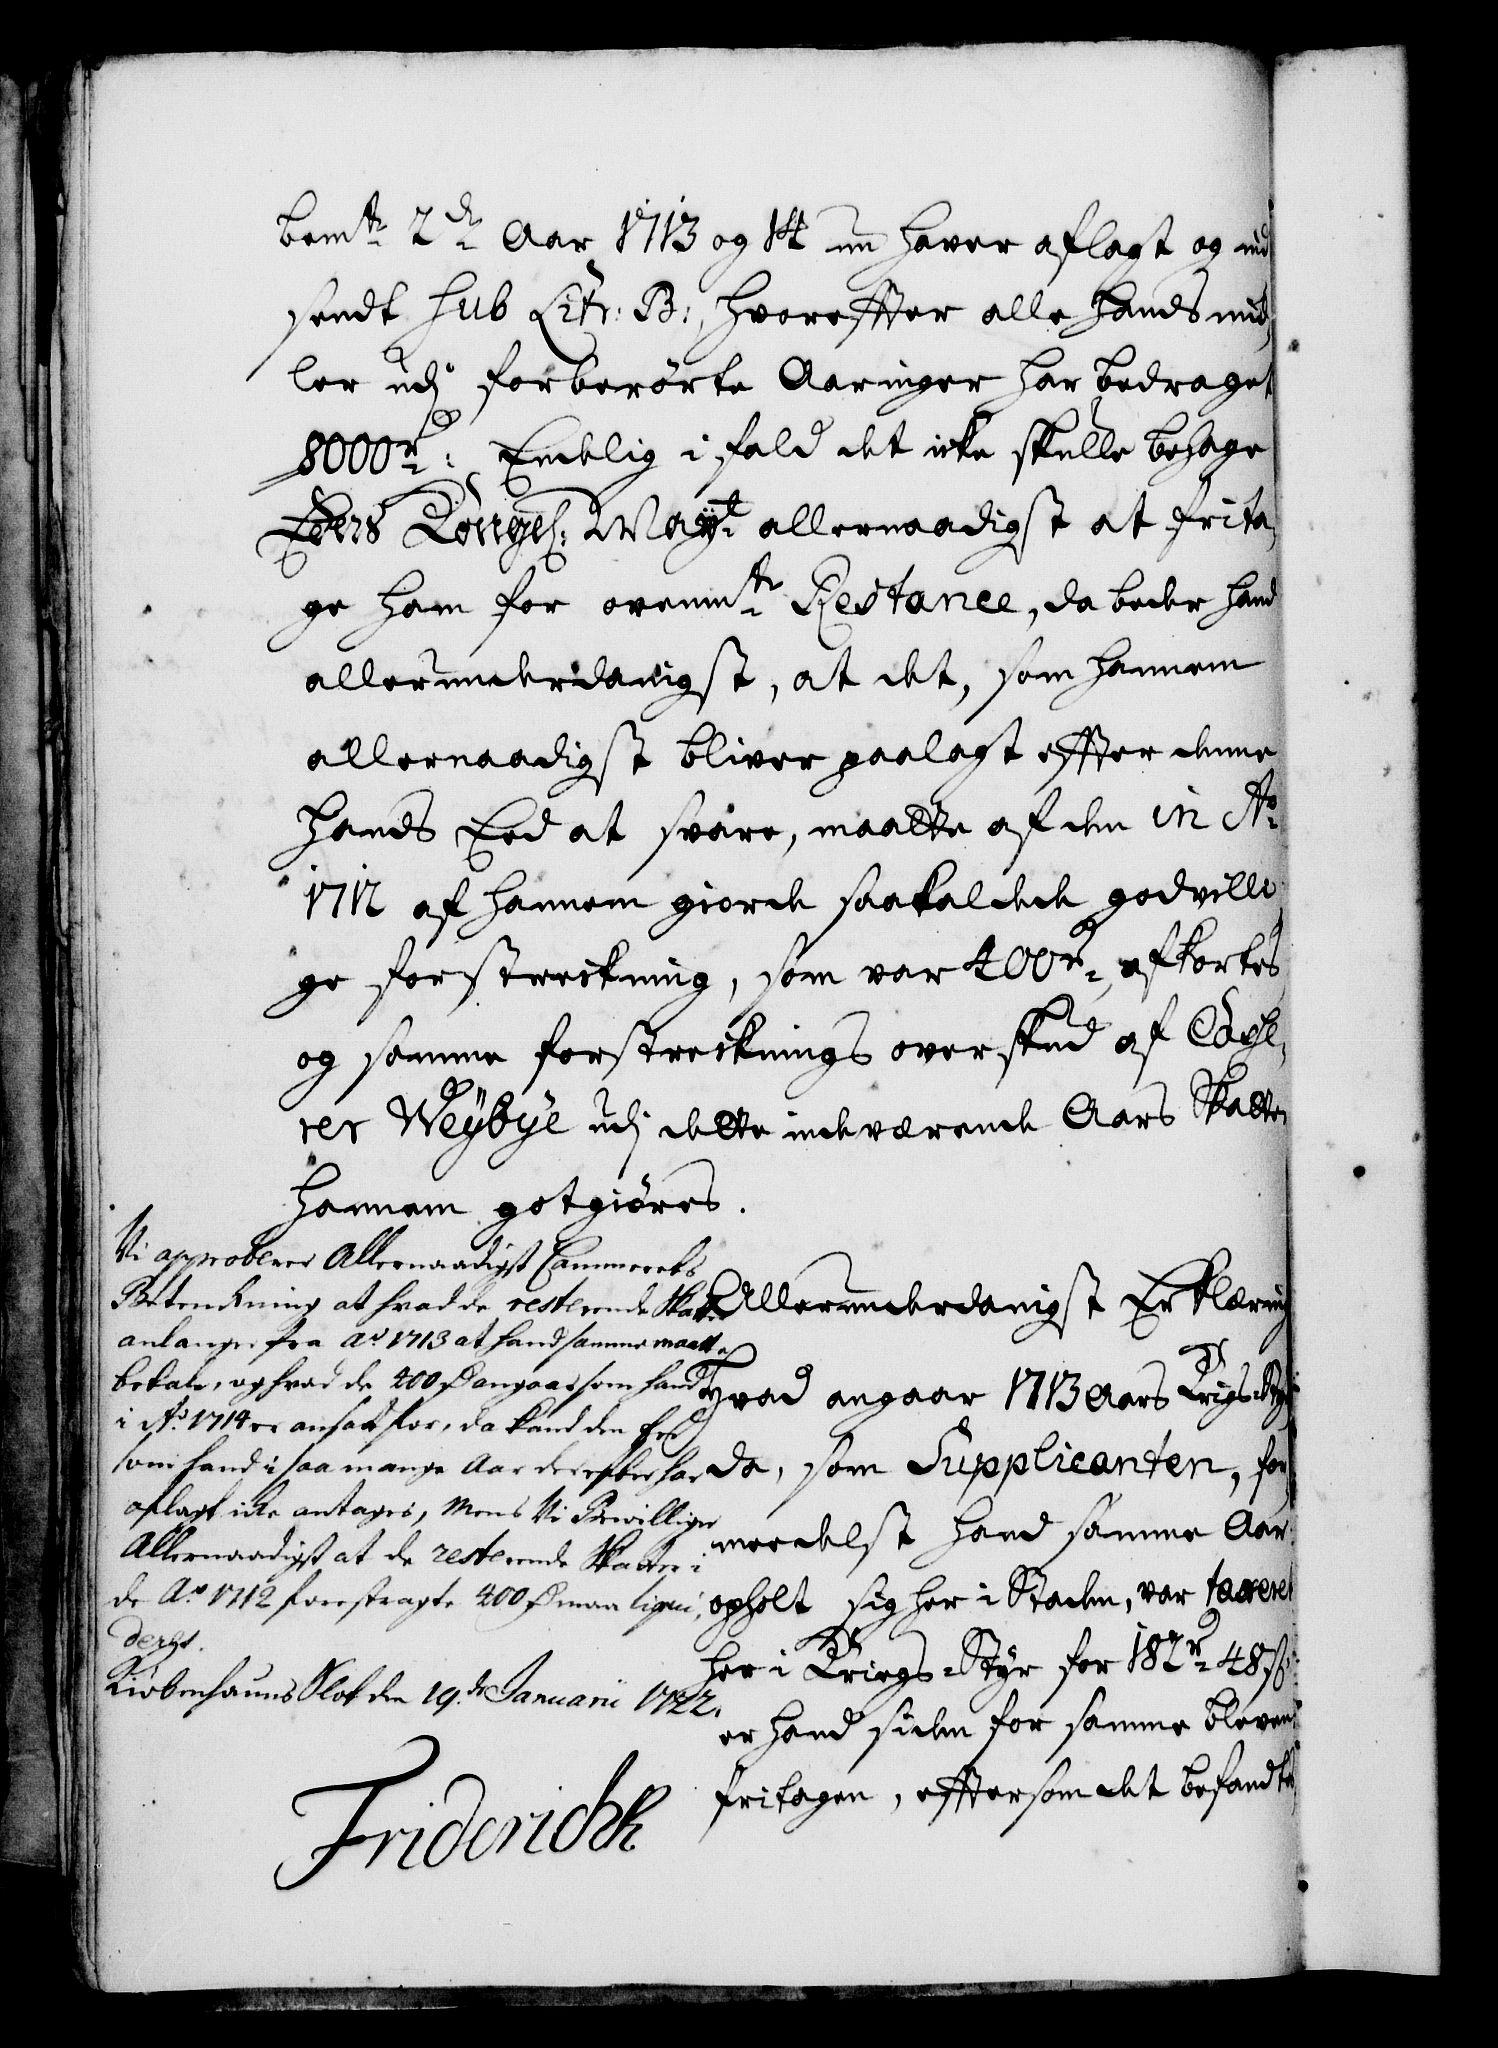 bemte 2de Aar 1713 og 14 nu haver aflagt og ind
sendt sub Litr: B:, hvoreffter alle hands mid,
ler udj forberørte Aaringer har bedraget
8000rd: Endelig i fald det icke skulle behage
Eders Kongel: Mayt allernaadigst at frita,
ge ham for ovenmte Restance, da beder hand
allerunderdanigst, at det, som hannem
allernaadigst bliver paalagt effter denne
hands Eed at svare, maatte af den in Ao
1712 af hannem giorde saakaldede godvilli,
ge forstreckning, som var 400rd, afkortes
og samme forstrecknings overskud af
rer Weybye udj dette indeværende Aars Skatter
hannem gotgiøres.
Vi approberer Allernaadigst Cammerets
Betenkning at hvad de resterende Skatter
anlanger fra Ao 1713 at hand samme maatte
betale, og hvad de 400 rd angaar som hand
i Ao 1714 er ansadt for, da kand den Eed
som hand i saa mange Aar derefter har
aflagt icke antages, Mens Vi Bevillige
Allernaadigst at de resterende Skatter i
de Ao 1712 forstragte 400 rd maa liqui,
deres.
Kiøbenhavns Slot den 19de Januarii 1722.
Friderich R
Allerunderdanigst Erklæring
Hvad angaar 1713 Aars Krigs-Styr
da, som Supplicanten, for
meedelst hand samme Aar
opholt sig her i Staden, var taxeret
her i Kriegs-Styr for 182rd 48s
er hand siden for samme bleven
fritagen, effter som det befandtes